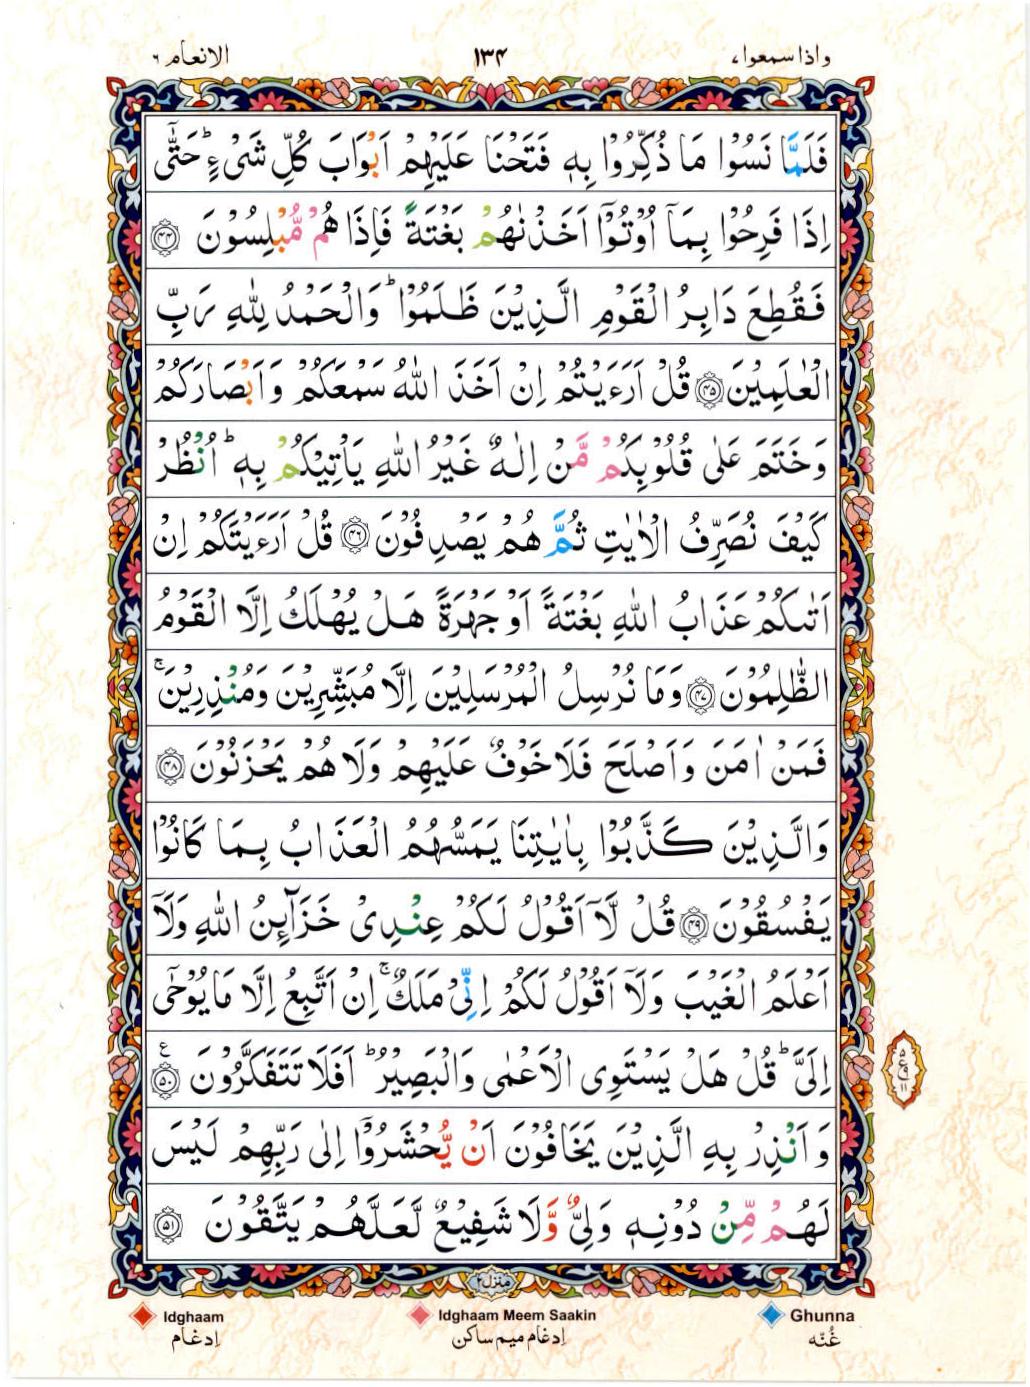 واذا سمعوا،
۱۳۴
الانعام ۶
فَلَمَّا نَسُوْا مَا ذُكِّرُوْا بِهٖ فَتَحْنَا عَلَيْهِمْ اَبْوَابَ كُلِّ شَیْءٍ ؕ حَتّٰۤی
اِذَا فَرِحُوْا بِمَاۤ اُوْتُوْۤا اَخَذْنٰهُمْ بَغْتَةً فَاِذَا هُمْ مُّبْلِسُوْنَ ﴿۴۴﴾
فَقُطِعَ دَابِرُ الْقَوْمِ الَّذِيْنَ ظَلَمُوْا ؕ وَالْحَمْدُ لِلّٰهِ رَبِّ
الْعٰلَمِيْنَ ﴿۴۵﴾ قُلْ اَرَءَيْتُمْ اِنْ اَخَذَ اللّٰهُ سَمْعَكُمْ وَاَبْصَارَكُمْ
وَخَتَمَ عَلٰی قُلُوْبِكُمْ مَّنْ اِلٰهٌ غَيْرُ اللّٰهِ يَاْتِيْكُمْ بِهٖ ؕ اُنْظُرْ
كَيْفَ نُصَرِّفُ الْاٰيٰتِ ثُمَّ هُمْ يَصْدِفُوْنَ ﴿۴۶﴾ قُلْ اَرَءَيْتَكُمْ اِنْ
اَتٰىكُمْ عَذَابُ اللّٰهِ بَغْتَةً اَوْ جَهْرَةً هَلْ يُهْلَكُ اِلَّا الْقَوْمُ
الظّٰلِمُوْنَ ﴿۴۷﴾ وَمَا نُرْسِلُ الْمُرْسَلِيْنَ اِلَّا مُبَشِّرِيْنَ وَمُنْذِرِيْنَ ۚ
فَمَنْ اٰمَنَ وَاَصْلَحَ فَلَا خَوْفٌ عَلَيْهِمْ وَلَا هُمْ يَحْزَنُوْنَ ﴿۴۸﴾
وَالَّذِيْنَ كَذَّبُوْا بِاٰيٰتِنَا يَمَسُّهُمُ الْعَذَابُ بِمَا كَانُوْا
يَفْسُقُوْنَ ﴿۴۹﴾ قُلْ لَّاۤ اَقُوْلُ لَكُمْ عِنْدِیْ خَزَآئِنُ اللّٰهِ وَلَاۤ
اَعْلَمُ الْغَيْبَ وَلَاۤ اَقُوْلُ لَكُمْ اِنِّیْ مَلَكٌ ۚ اِنْ اَتَّبِعُ اِلَّا مَا يُوْحٰۤی
اِلَیَّ ؕ قُلْ هَلْ يَسْتَوِی الْاَعْمٰی وَالْبَصِيْرُ ؕ اَفَلَا تَتَفَكَّرُوْنَ ﴿۵۰﴾ ع
وَاَنْذِرْ بِهِ الَّذِيْنَ يَخَافُوْنَ اَنْ يُّحْشَرُوْۤا اِلٰی رَبِّهِمْ لَيْسَ
لَهُمْ مِّنْ دُوْنِهٖ وَلِیٌّ وَّلَا شَفِيْعٌ لَّعَلَّهُمْ يَتَّقُوْنَ ﴿۵۱﴾
منزل۲
Idghaam
Idghaam Meem Saakin
Ghunna
اِدغام
اِدغام میم ساکن
غُنّہ